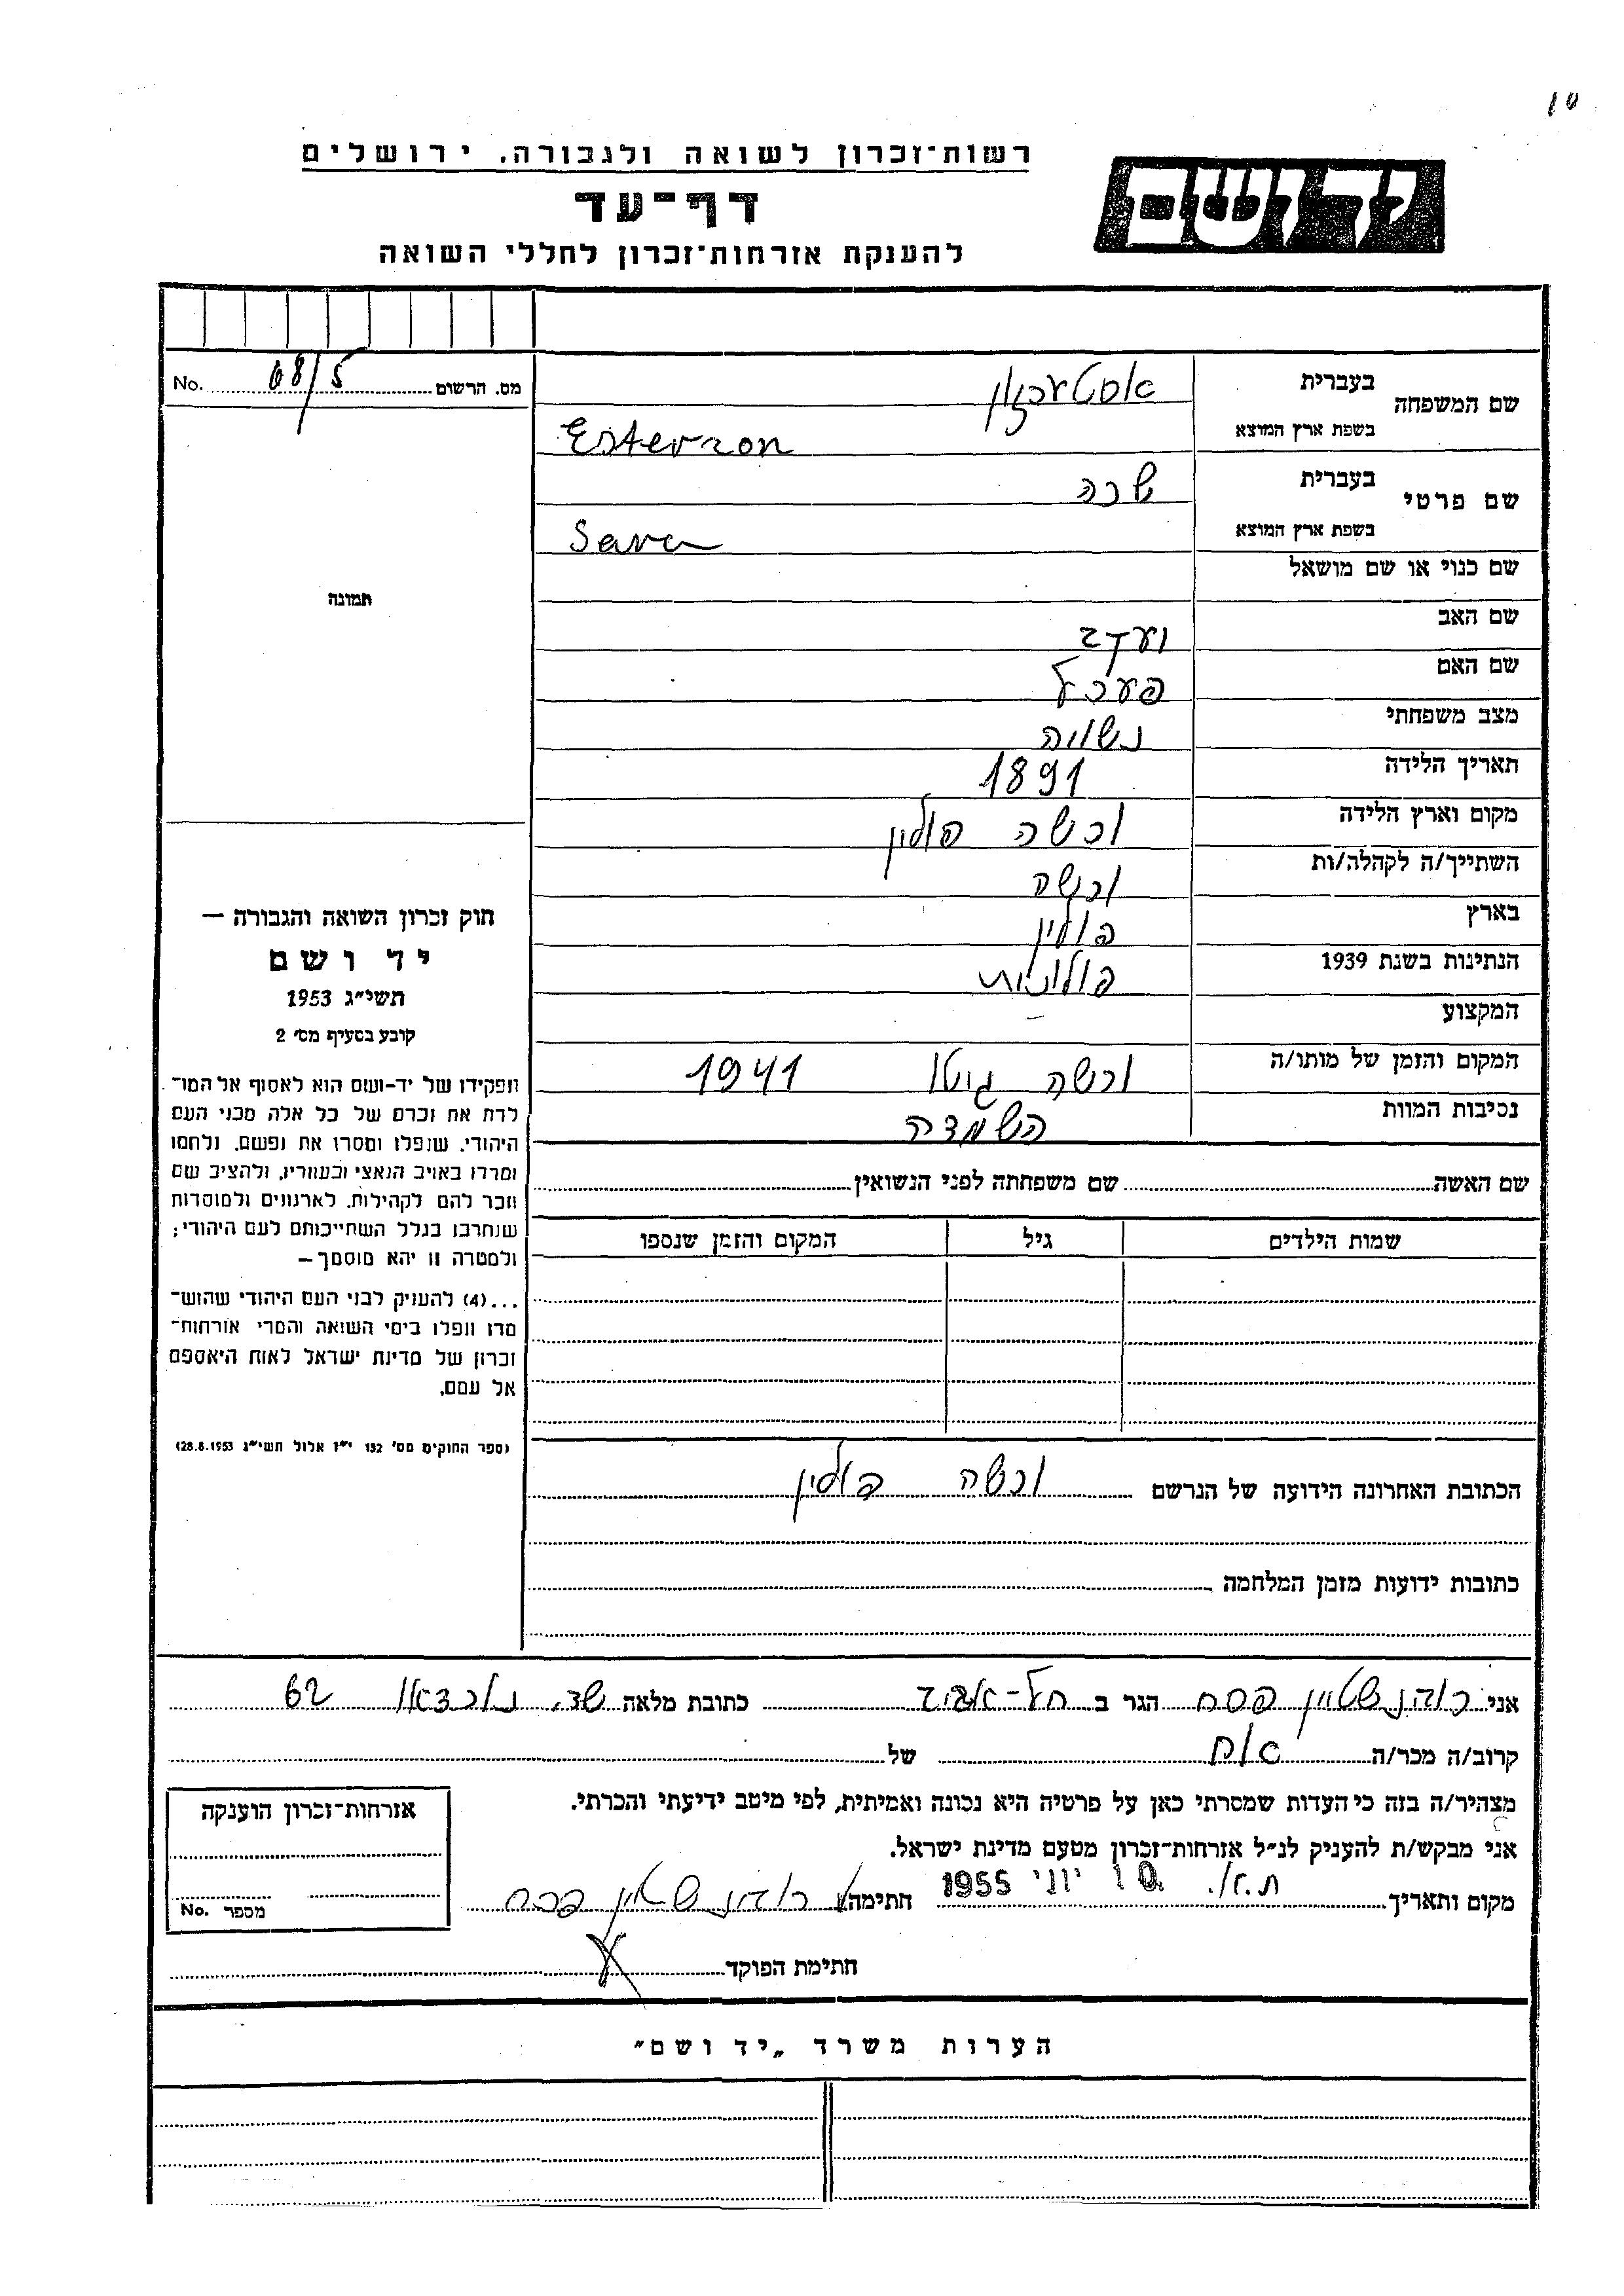 10
רשות־זכרון לשואה ולגבורה, ירושלים
יד ושם
דף־עד
להענקת אזרחות־זכרון לחללי השואה
מס. הרשום 68/5 No.
שם המשפחה
בעברית אסטערזון
בשפת ארץ המוצא Esterzon
שם פרטי
בעברית שרה
בשפת ארץ המוצא Sara
שם כנוי או שם מושאל
שם האב
שם האם פערל
מצב משפחתי נשואה
תאריך הלידה 1891
מקום וארץ הלידה ורשה פולין
השתייך/ה לקהלה/ות ורשה
בארץ פולין
הנתינות בשנת 1939 פולונית
המקצוע –
המקום והזמן של מותו/ה ורשה גיטו 1941
נסיבות המוות השמדה
שם האשה שם משפחתה לפני הנשואין
שמות הילדים גיל המקום והזמן שנספו
תמונה
חוק זכרון השואה והגבורה —
יד ושם
תשי״ג 1953
קובע בסעיף מס׳ 2
תפקידו של יד-ושם הוא לאסוף אל המו־
לדת את זכרם של כל אלה מבני העם
היהודי, שנפלו ומסרו את נפשם, נלחמו
ומרדו באויב הנאצי ובעוזריו, ולהציב שם
וזכר להם לקהילות, לארגונים ולמוסדות
שנחרבו בגלל השתייכותם לעם היהודי;
ולמטרה זו יהא מוסמך—
...(4) להעניק לבני העם היהודי שהוש־
מדו ונפלו בימי השואה והמרי אזרחות־
זכרון של מדינת ישראל לאות היאספם
אל עמם.
(ספר החוקים מס׳ 132 י״ז אלול תשי״ג 28.8.1953)
הכתובת האחרונה הידועה של הנרשם ורשה פולין
כתובות ידועות מזמן המלחמה
אני רוהנשטיין פסח הגר ב תל-אביב כתובת מלאה שד. נורדאו 62
קרוב/ה מכר/ה אח של
מצהיר/ה בזה כי העדות שמסרתי כאן על פרטיה היא נכונה ואמיתית, לפי מיטב ידיעתי והכרתי.
אני מבקש/ת להעניק לנ״ל אזרחות־זכרון מטעם מדינת ישראל.
מקום ותאריך ת.א. 10 יוני 1955 חתימה רוהנשטיין פסח
חתימת הפוקד
אזרחות־זכרון הוענקה
מספר No.
הערות משרד „יד ושם״